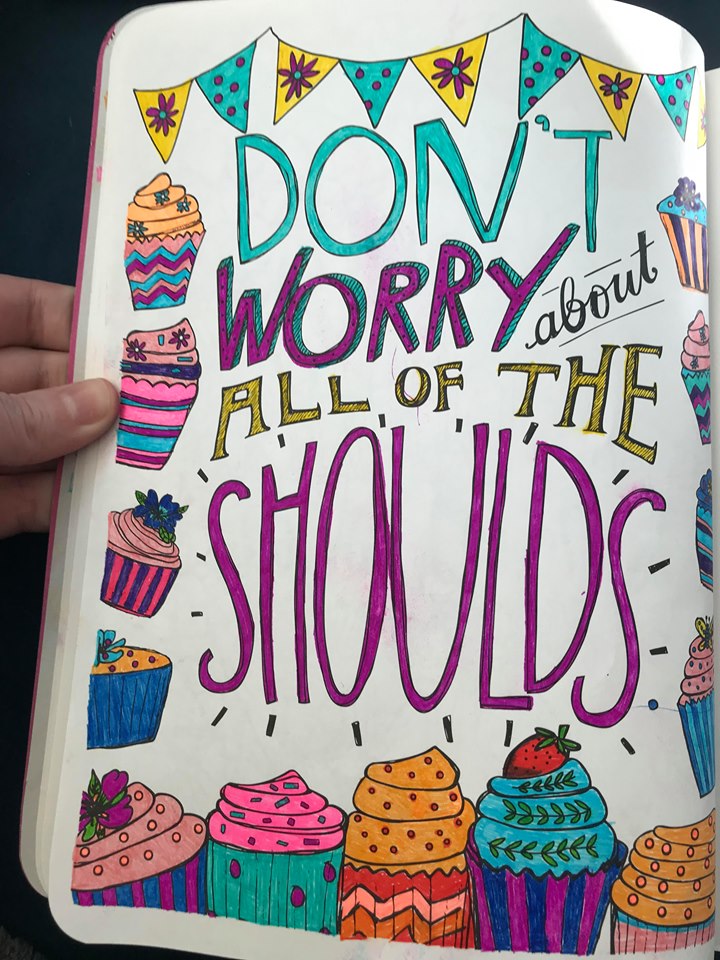 DON'T
WORRY about
ALL OF THE
SHOULDS